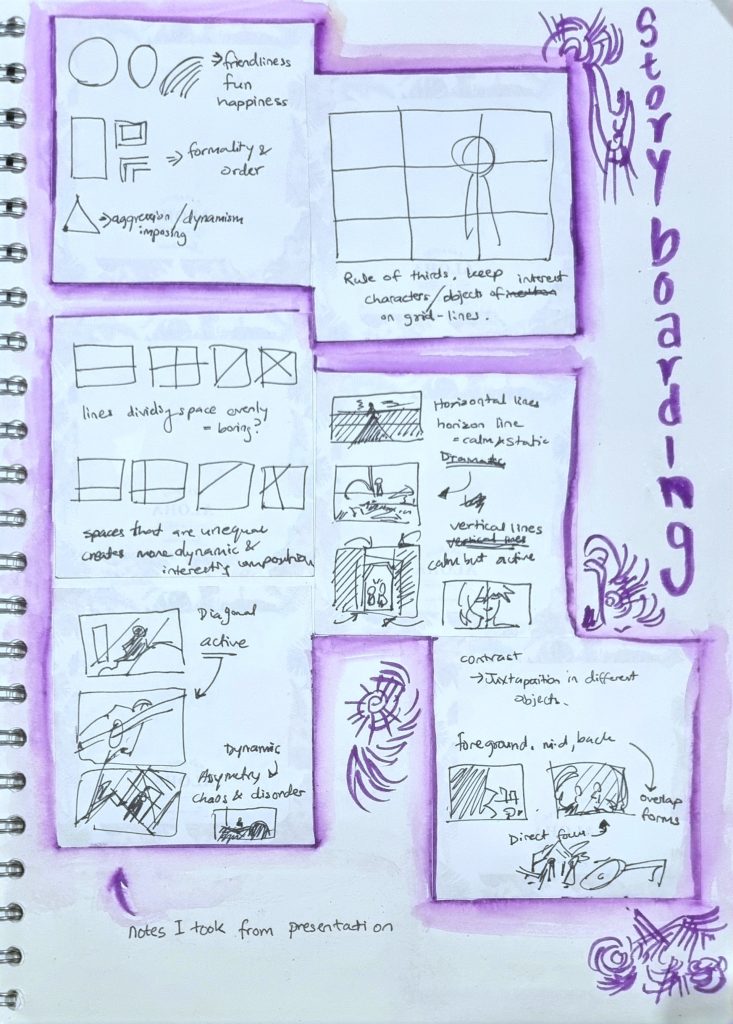 Story boarding
→ friendliness
fun
happiness
⇒ formality &
order
⇒ aggression/dynamism
imposing
Rule of thirds. keep interest
characters/objects of
on grid-lines.
lines dividing space evenly
= boring?
spaces that are unequal
creates more dynamic &
interesting composition
Horizontal lines
horizon line
= calm & static
Dramatic
vertical lines
vertical lines
calm but active
Diagonal
active
Dynamic
Asymetry
chaos & disorder
contrast
→ Juxtaposition in different
objects.
foreground, mid, back
overlap
forms
Direct focus
notes I took from presentation